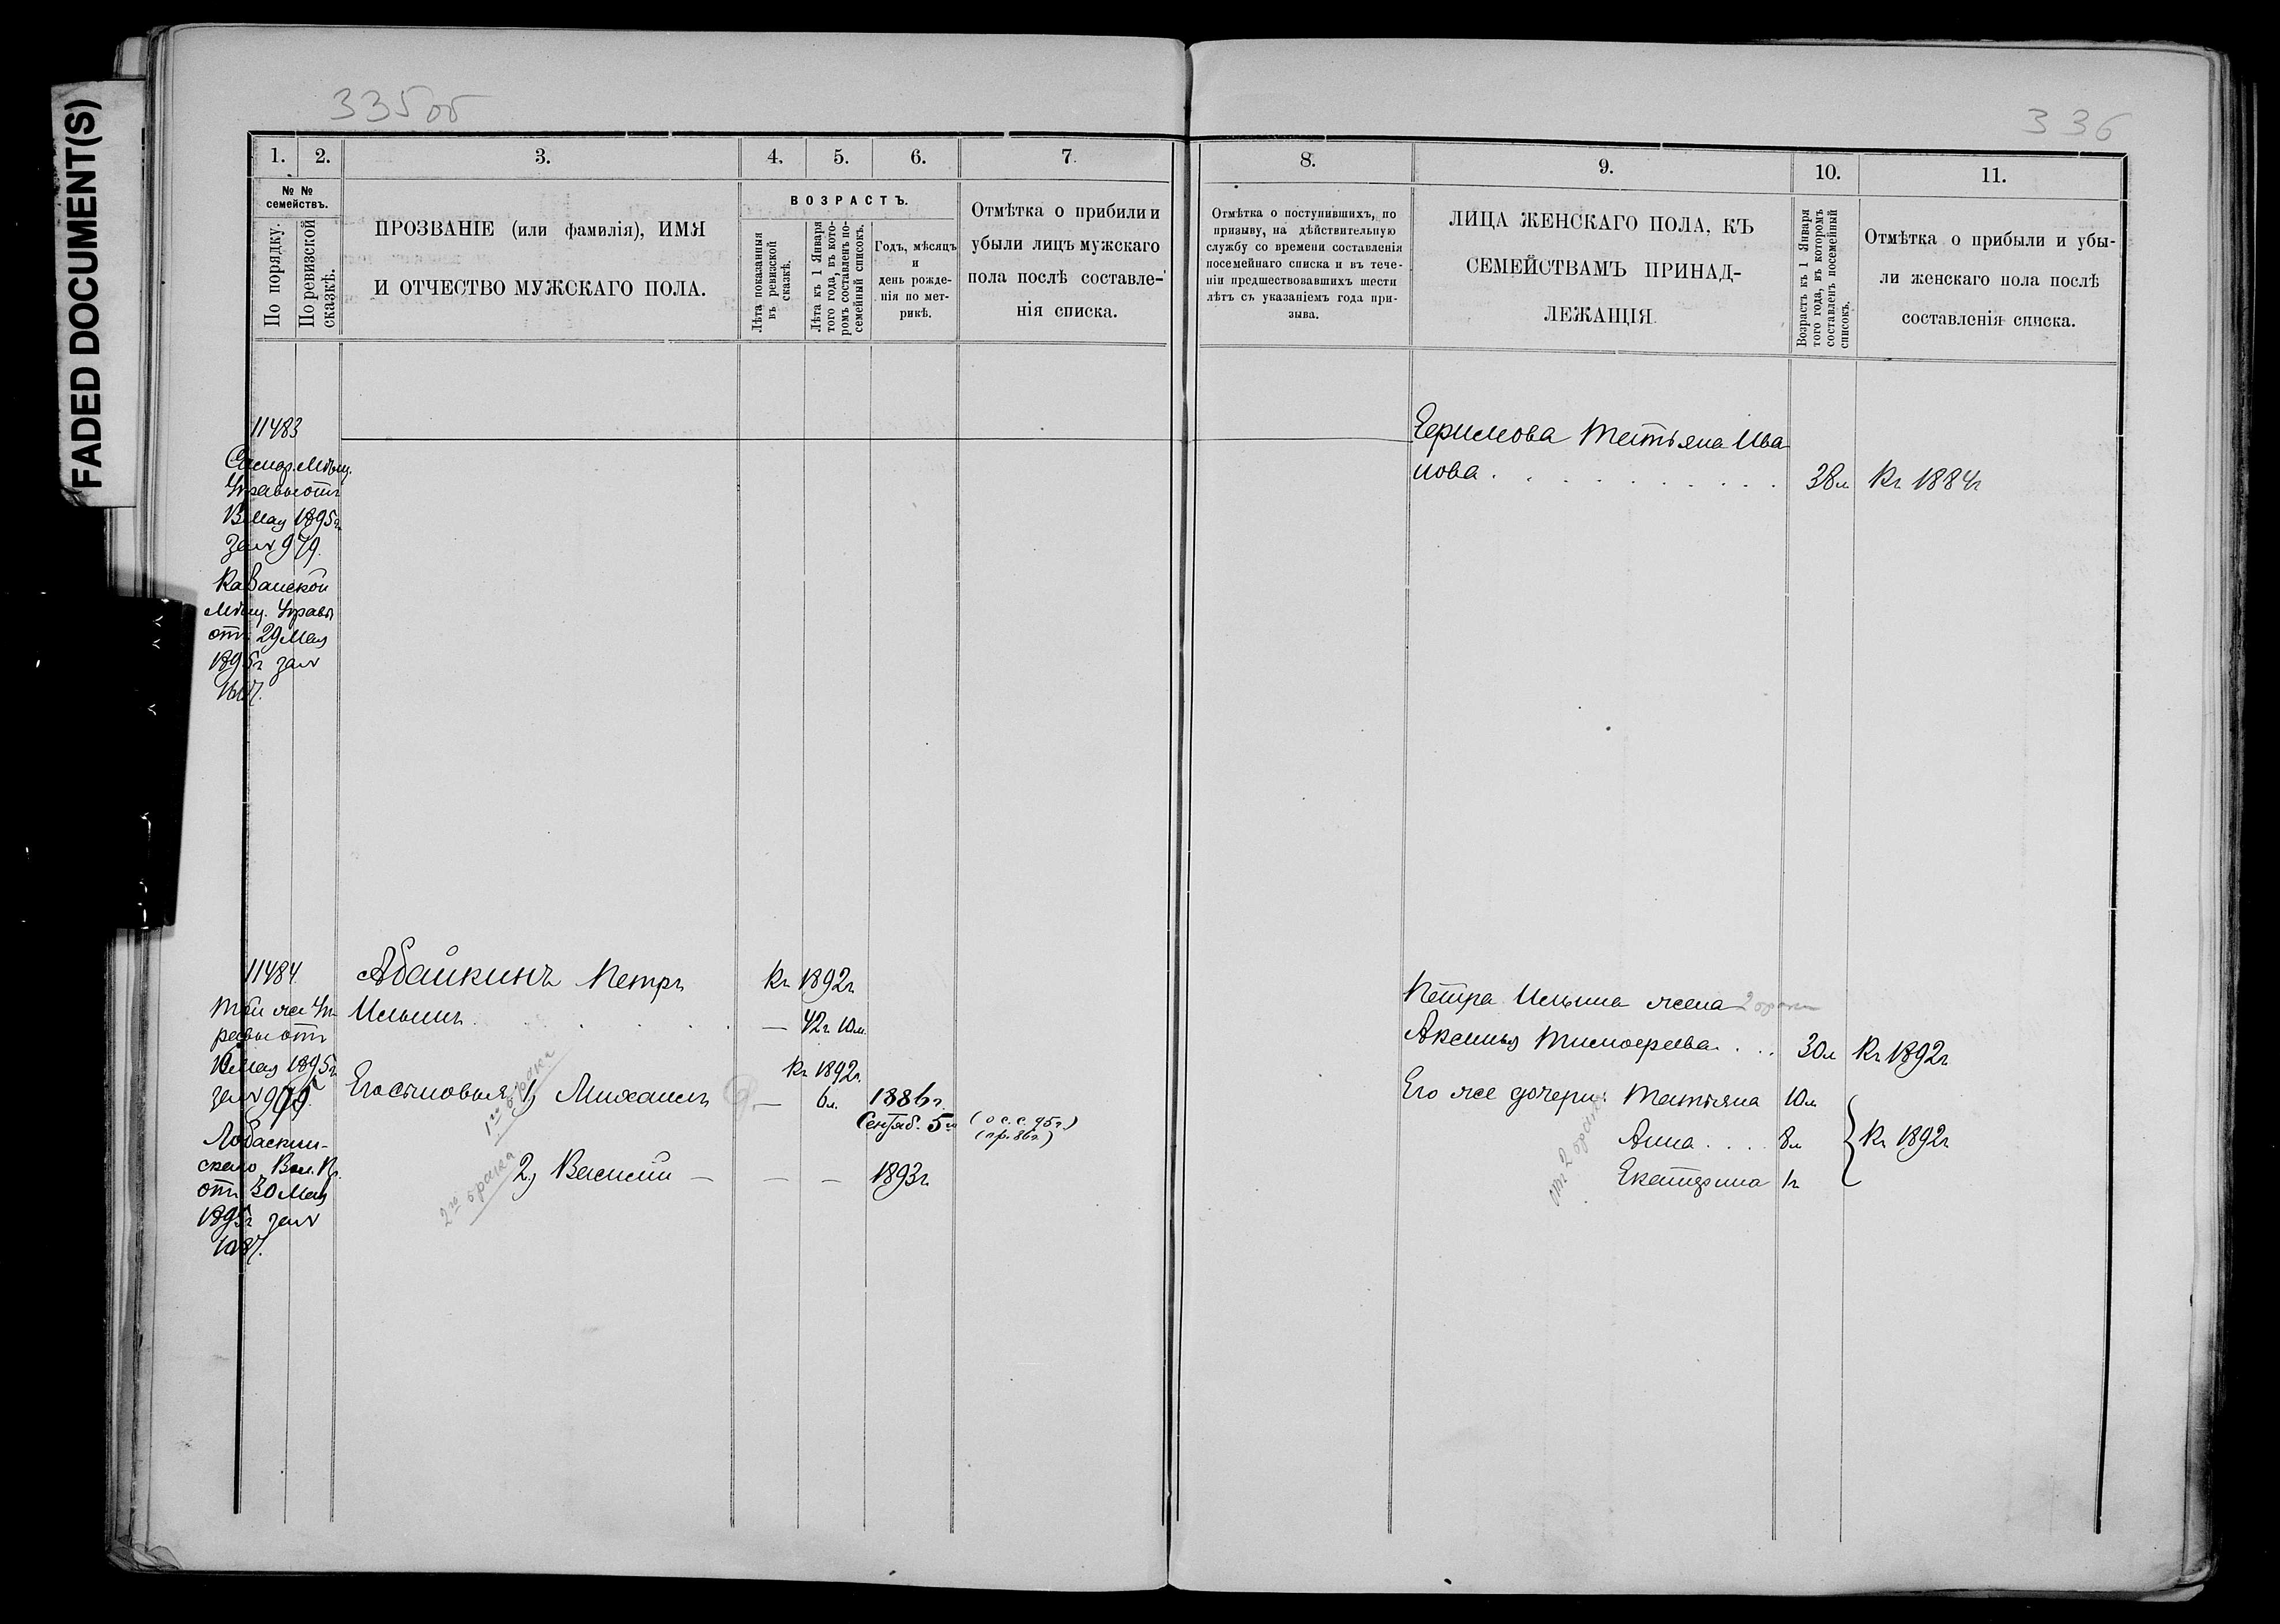 FADED DOCUMENT(S)
335 об
336
1. 2. 3. 4. 5. 6. 7.
№ №
семействъ.
По порядку.
По ревизской
сказкѣ.
ПРОЗВАНІЕ (или фамилія), ИМЯ
И ОТЧЕСТВО МУЖСКАГО ПОЛА.
ВОЗРАСТЪ.
Лѣта показанныя
въ ревизской
сказкѣ.
Лѣта къ 1 Января
того года, въ кото-
ромъ составленъ по-
семейный списокъ.
Годъ, мѣсяцъ
и
день рожде-
нія по мет-
рикѣ.
Отмѣтка о прибыли и
убыли лицъ мужскаго
пола послѣ составле-
нія списка.
8. 9. 10. 11.
Отмѣтка о поступившихъ, по
призыву, на дѣйствительную
службу со времени составленія
посемейнаго списка и въ тече-
ніи предшествовавшихъ шести
лѣтъ съ указаніемъ года при-
зыва.
ЛИЦА ЖЕНСКАГО ПОЛА, КЪ
СЕМЕЙСТВАМЪ ПРИНАД-
ЛЕЖАЩІЯ
Возрастъ къ 1 Января
того года, въ которомъ
составленъ посемейный
списокъ.
Отмѣтка о прибыли и убы-
ли женскаго пола послѣ
составленія списка.
11483
Управы отъ
Мая 1895г.
за № 979.
Казанской
Мѣщ. Управы
отъ 29 Мая
1895г за №
Татьяна Ива
нова . . . . . . . . . . 38л Къ 1884г
11484.
Той же Уп-
равы отъ
Мая 1895г
за № 979.
Вол. Пр.
отъ 30 Мая
1895г за №
1087.
Абайкинъ Петръ Къ 1892г
Ильинъ . . . . . . — 42г 10м.
Къ 1892г.
Его сыновья 1, Михаилъ — 6л. 1886г.
Сентяб. 5го
(о с. с. 95г.)
(пр. 86г.)
1го брака
2, Василій — — — 1893г
2го брака
Петра Ильина жена 2 брака
Аксинья Тимофеева . . . 30л Къ 1892г
Его же дочери: Татьяна 10л
Анна . . . . 8л Къ 1892г
Екатерина 1г
от 2 брака